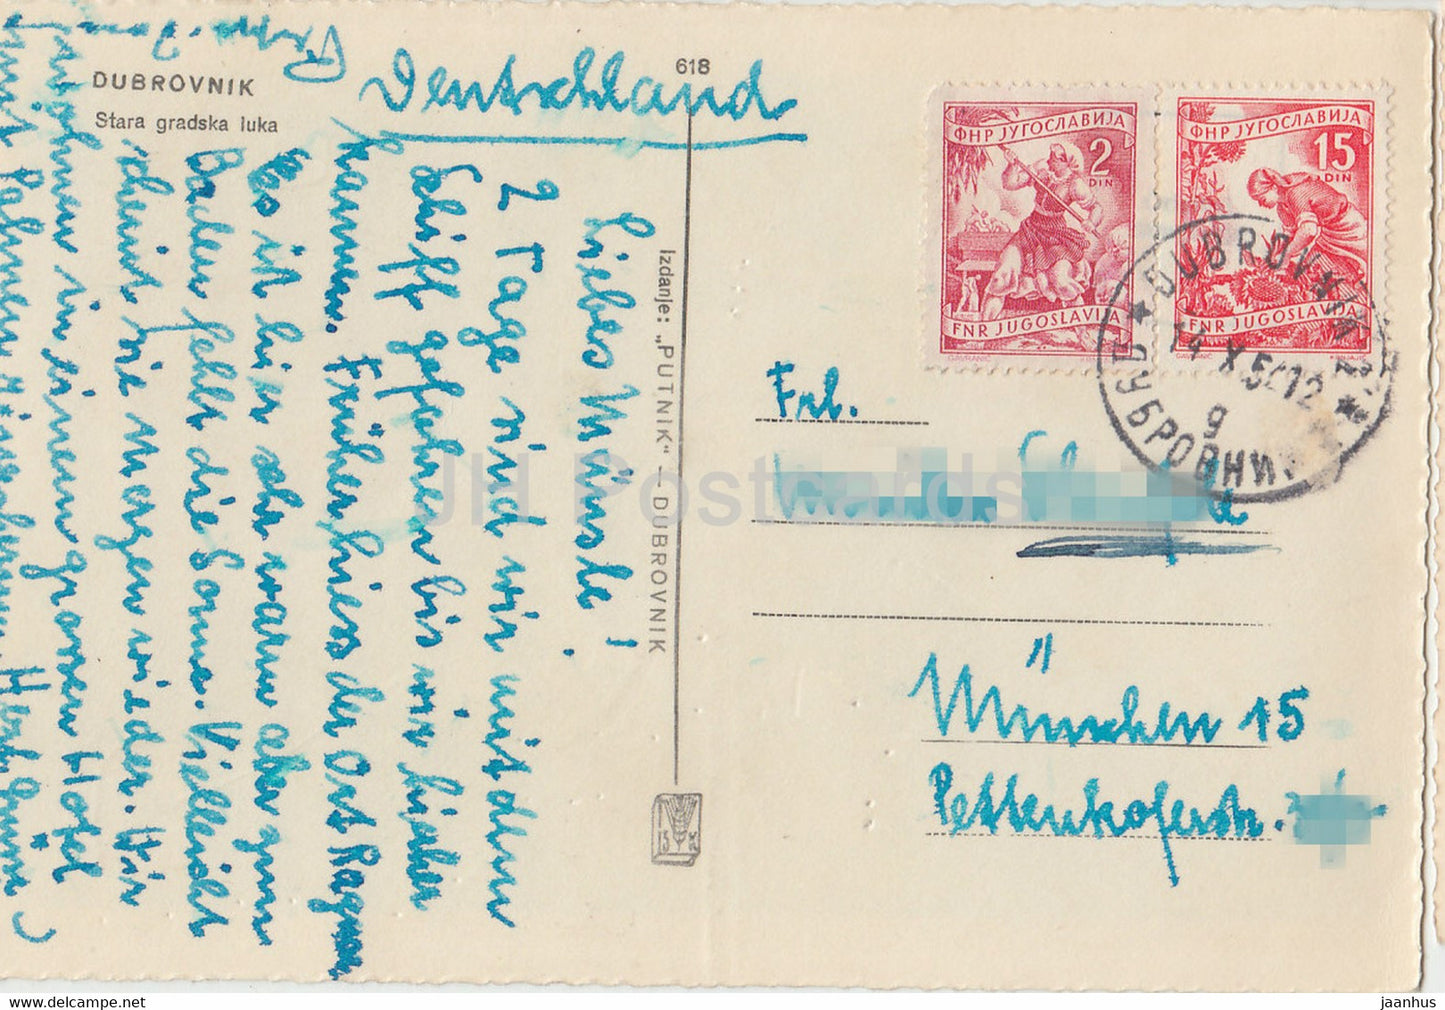 DUBROVNIK
Stara gradska luka
618
Deutschland
Liebes Mäusle!
2 Tage sind wir mit dem
Schiff gefahren bis wir hierher
kamen. Früher hiess der Ort Ragusa
Es ist hier sehr warm aber zum
Baden fehlt die Sonne. Vielleicht
scheint sie morgen wieder. Wir
wohnen in einem grossen Hotel
mit Palmen
Izdanje: „PUTNIK“ — DUBROVNIK
ФНР ЈУГОСЛАВИЈА
2
DIN
FNR JUGOSLAVIJA
GAVRANIĆ
ФНР ЈУГОСЛАВИЈА
15
DIN
FNR JUGOSLAVIJA
GAVRANIĆ
DUBROVNIK
14 X 54 12
g
ДУБРОВНИК
Frl.
München 15
Pettenkoferstr.
JH Postcards
https://www.delcampe.net
jaanhus